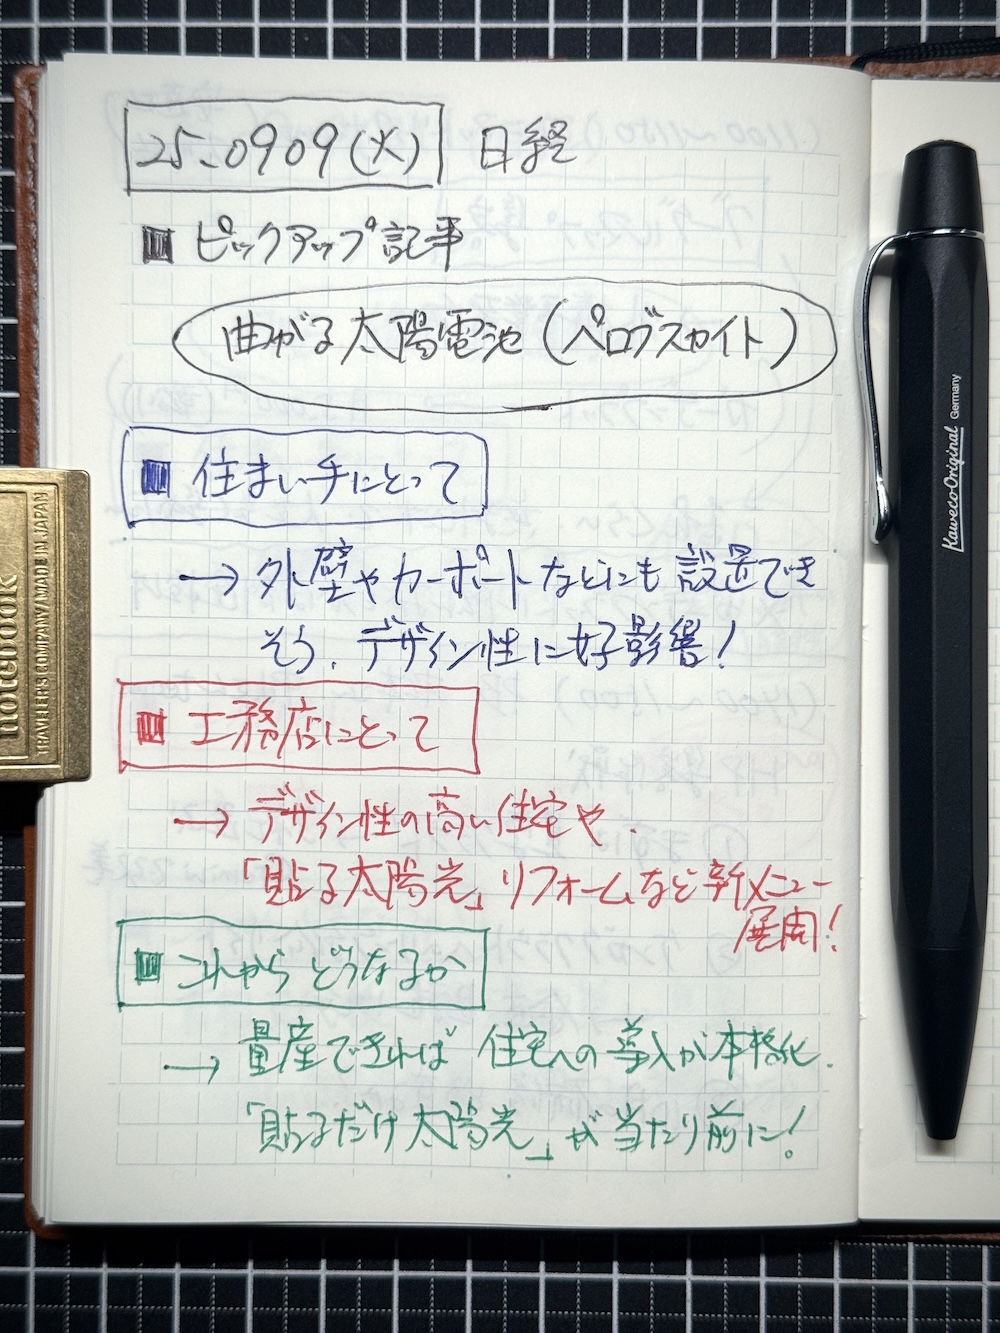 25.0909(火) 日経
■ ピックアップ記事
曲がる太陽電池(ペロブスカイト)
■ 住まい手にとって
→ 外壁やカーポートなどにも設置でき
そう、デザイン性に好影響!
■ 工務店にとって
→ デザイン性の高い住宅や、
「貼る太陽光」リフォームなど新メニュー
展開!
■ これからどうなるか
→ 量産できれば住宅への導入が本格化、
「貼るだけ太陽光」が当たり前に!
notebook
TRAVELER'S COMPANY MADE IN JAPAN
Kaweco Original Germany